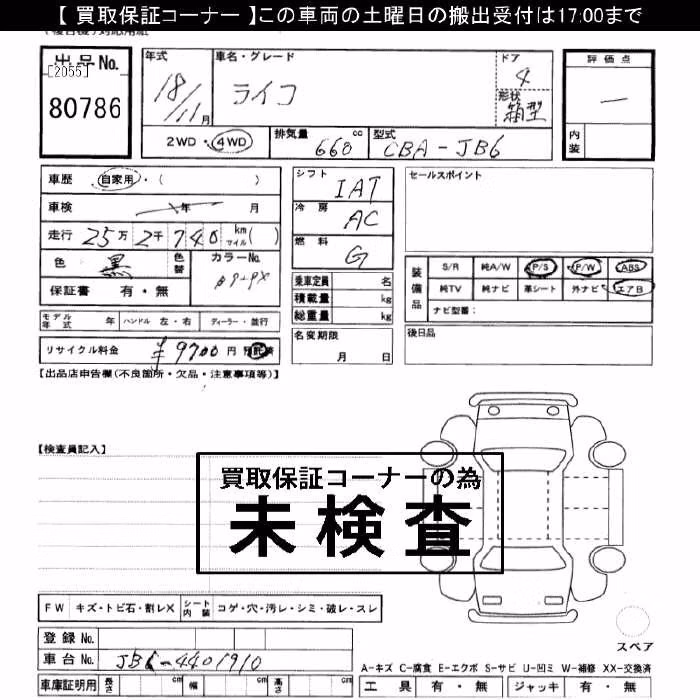 【 買取保証コーナー 】この車両の土曜日の搬出受付は17:00まで
出品No.
[2055]
80786
年式
18/11月
車名・グレード
ライコ
ドア
4
形状
箱型
評価点
一
内装
2WD・4WD
排気量 660 cc
型式 CBA-JB6
車歴 自家用・( )
車検 年 月
走行 25万2千740 km マイル( )
色 黒 色替
カラーNo.
保証書 有・無
モデル年式 年 ハンドル 左・右 ディーラー・並行
リサイクル料金 ¥9700円 預託済
シフト IAT
冷房 AC
燃料 G
乗車定員 名
積載量 kg
総重量 kg
名変期限
月 日
セールスポイント
装備品
S/R 純A/W P/S P/W ABS
純TV 純ナビ 革シート 外ナビ エアB
ナビ型番：
後日品
【出品店申告欄(不良箇所・欠品・注意事項等)】
【検査員記入】
買取保証コーナーの為
未検査
FW キズ・トビ石・割レX シート内装 コゲ・穴・汚レ・シミ・破レ・スレ
登録No.
車台No. JB6-4401910
車庫証明用 長さ cm 幅 cm 高さ cm
スペア
A-キズ C-腐食 E-エクボ S-サビ U-凹ミ W-補修 XX-交換済
工具 有・無 ジャッキ 有・無